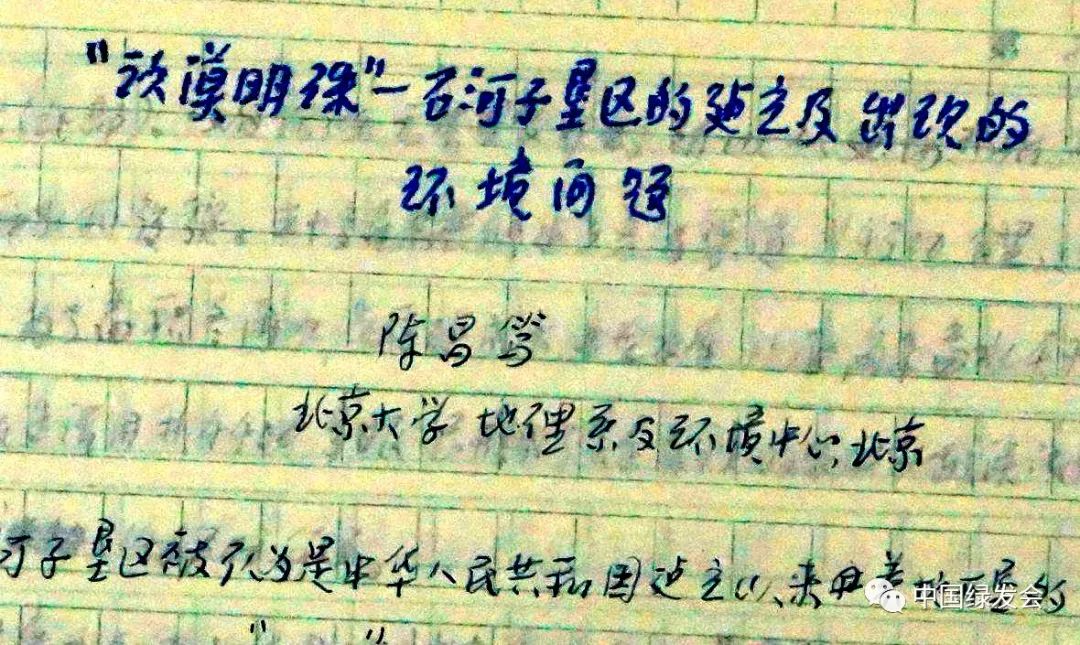 "沙漠明珠"—石河子垦区的建立及出现的
环境问题
陈昌笃
北京大学地理系及环境中心,北京
河子垦区被认为是中华人民共和国建立以来
中国绿发会